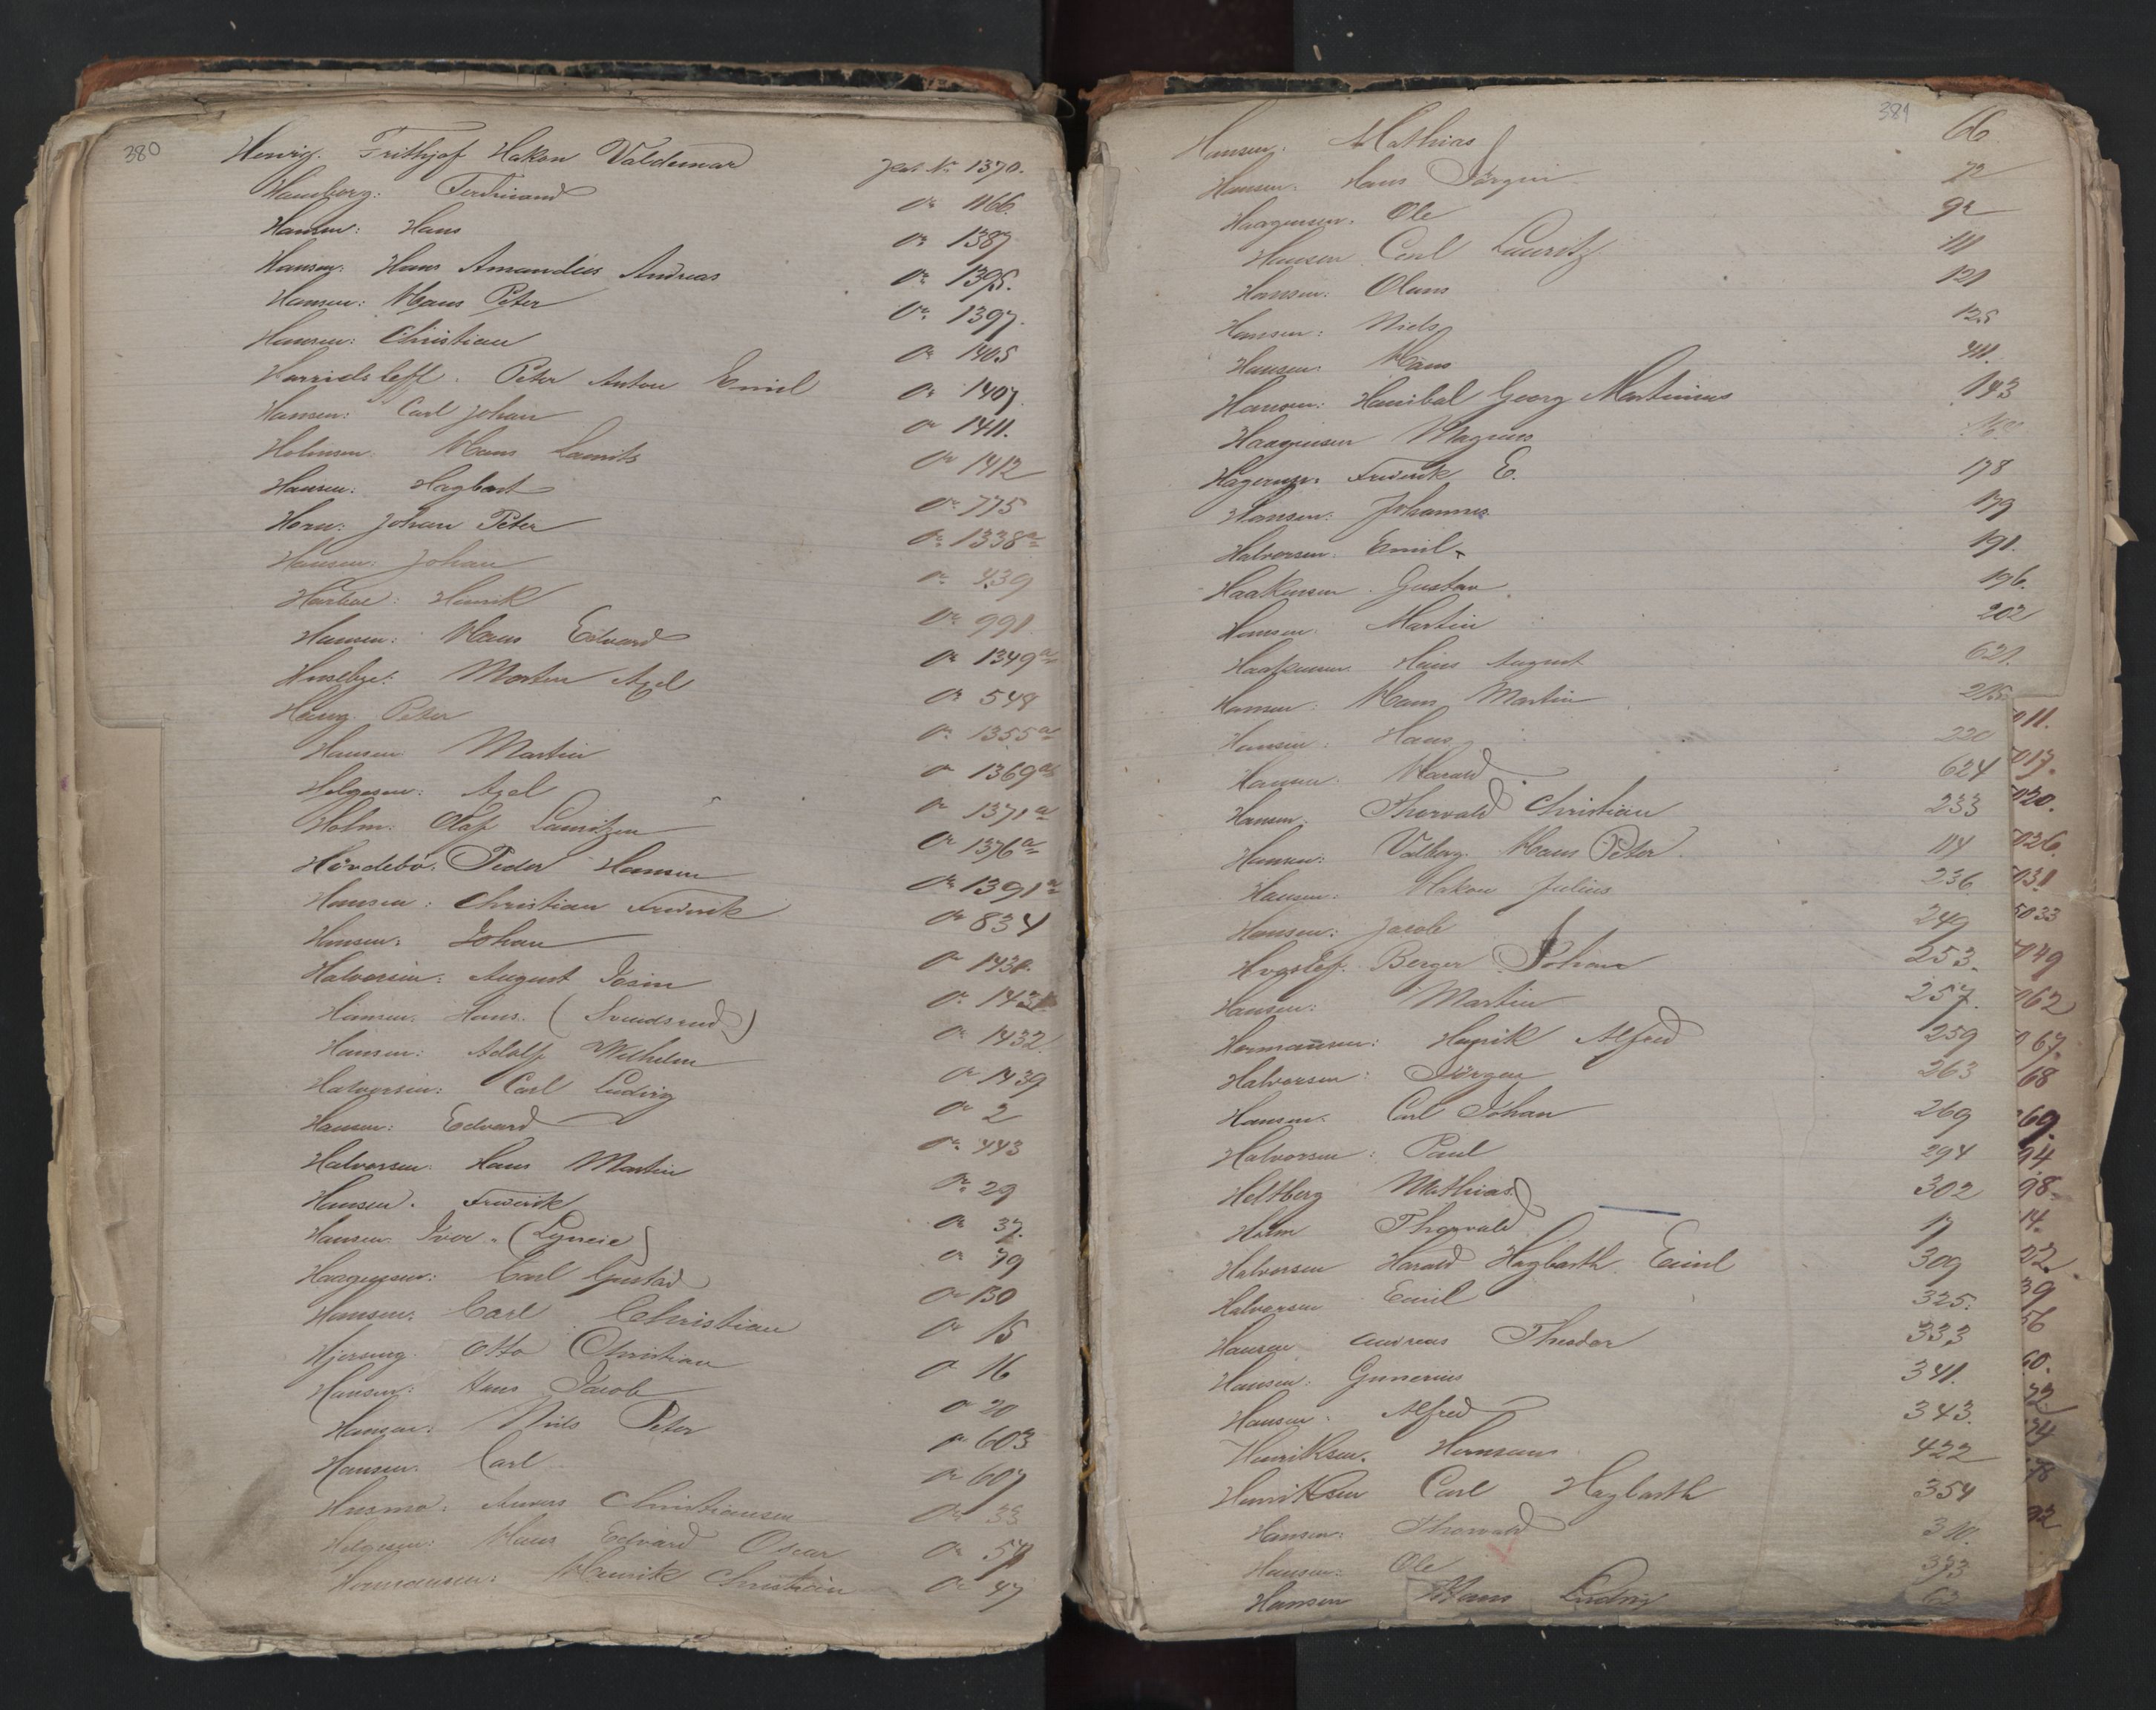 380
Henrig. Frithjof Hakon Valdemar Jevt. Nr. 1370.
Hamborg: Ferdinand Do 1166.
Hansen: Hans Do 1387
Hansen: Hans Amandius Andreas Do 1395.
Hansen: Hans Peter Do 1397.
Hansen: Christian Do 1405
Harridsleff. Peter Anton Emil Do 1407
Hansen: Carl Johan Do 1411.
Holmsen Hans Laurits Do 1412
Hansen: Hagbart Do 775
Horn: Johan Peter Do 1338a
Hansen: Johan Do 439
Henrik Do 991
Hansen: Hans Edvard Do 1349a
Huseby: Morten Axel Do 548
Haug Peter Do 1355a
Hansen Martin Do 1369a
Helgesen: Axel Do 1371a
Holm. Olaf Lauritzen Do 1376a
Hövdebö. Peder Hansen Do 1391a
Hansen: Christian Fredrik Do 834
Hansen: Johan Do 1430.
Halvorsen: August Do 1431
Hansen. Hans. (Svendsrud) Do 1432.
Hansen: Adolf Wilhelm Do 1439
Halvorsen: Carl Ludvig Do 2
Hansen: Edvard Do 443
Halvorsen: Hans Martin Do 29
Hansen. Fredrik Do 37.
Hansen. Iver. Do 79
Haagensen: Carl Gustav Do 130
Hansen: Carl Christian Do 15
Hjersing. Otto Christian Do 16
Hansen: Hans Jacob Do 20
Hansen: Niels Peter Do 603
Hansen. Carl Do 607
Husmo: Anders Christiansen Do 33
Helgesen: Hans Edvard Oscar Do 54
Hermansen: Henrik Christian Do 47
381
Hansen. Mathias 66
Hansen: Hans Jörgen 72
Haagensen. Ole 92
Hansen Carl Lauritz 111
Hansen: Olaus 121
Hansen: Niels 125
Hansen: Hans 411.
Hansen: Hanibal Georg Martinius 143
Haagensen Magnus
Hagerup: Fredrik E. 178
Hansen: Johannes 179
Halvorsen: Emil 191.
Haakensen. Gustav. 196.
Hansen Martin 202
Haakensen Hans August 621.
Hansen: Hans Martin 215
Hansen: Hans 220
Hansen. Harald 624
Hansen: Thorvald Christian 233
Hansen: Valborg. Hans Peter. 114
Hansen: Hakon Julius 236
Hansen: Jacob 249
Hvoslef. Berger Johan 253.
Hansen: Martin 257.
Hermansen: Henrik Alfred 259
Halvorsen: Jörgen 263
Hansen. Carl Johan 269
Halvorsen: Paul 294
Heltberg Mathias 302
Holm Thorvald 17
Halvorsen Harald Hagbarth Emil 309
Halvorsen Emil 325.
Hansen Andreas Theodor 333
Hansen: Gunerius 341.
Hansen. Alfred 343.
Henriksen. Hermann 422
Henriksen Carl Hagbarth 354
Hansen: Thorvald 310.
Hansen: Ole 373
Hansen Hans Ludvig 63
011.
017.
020.
026.
031
5033
049
062
067.
68
69.
94
98.
14.
22.
39
56
60.
72.
74
78
92